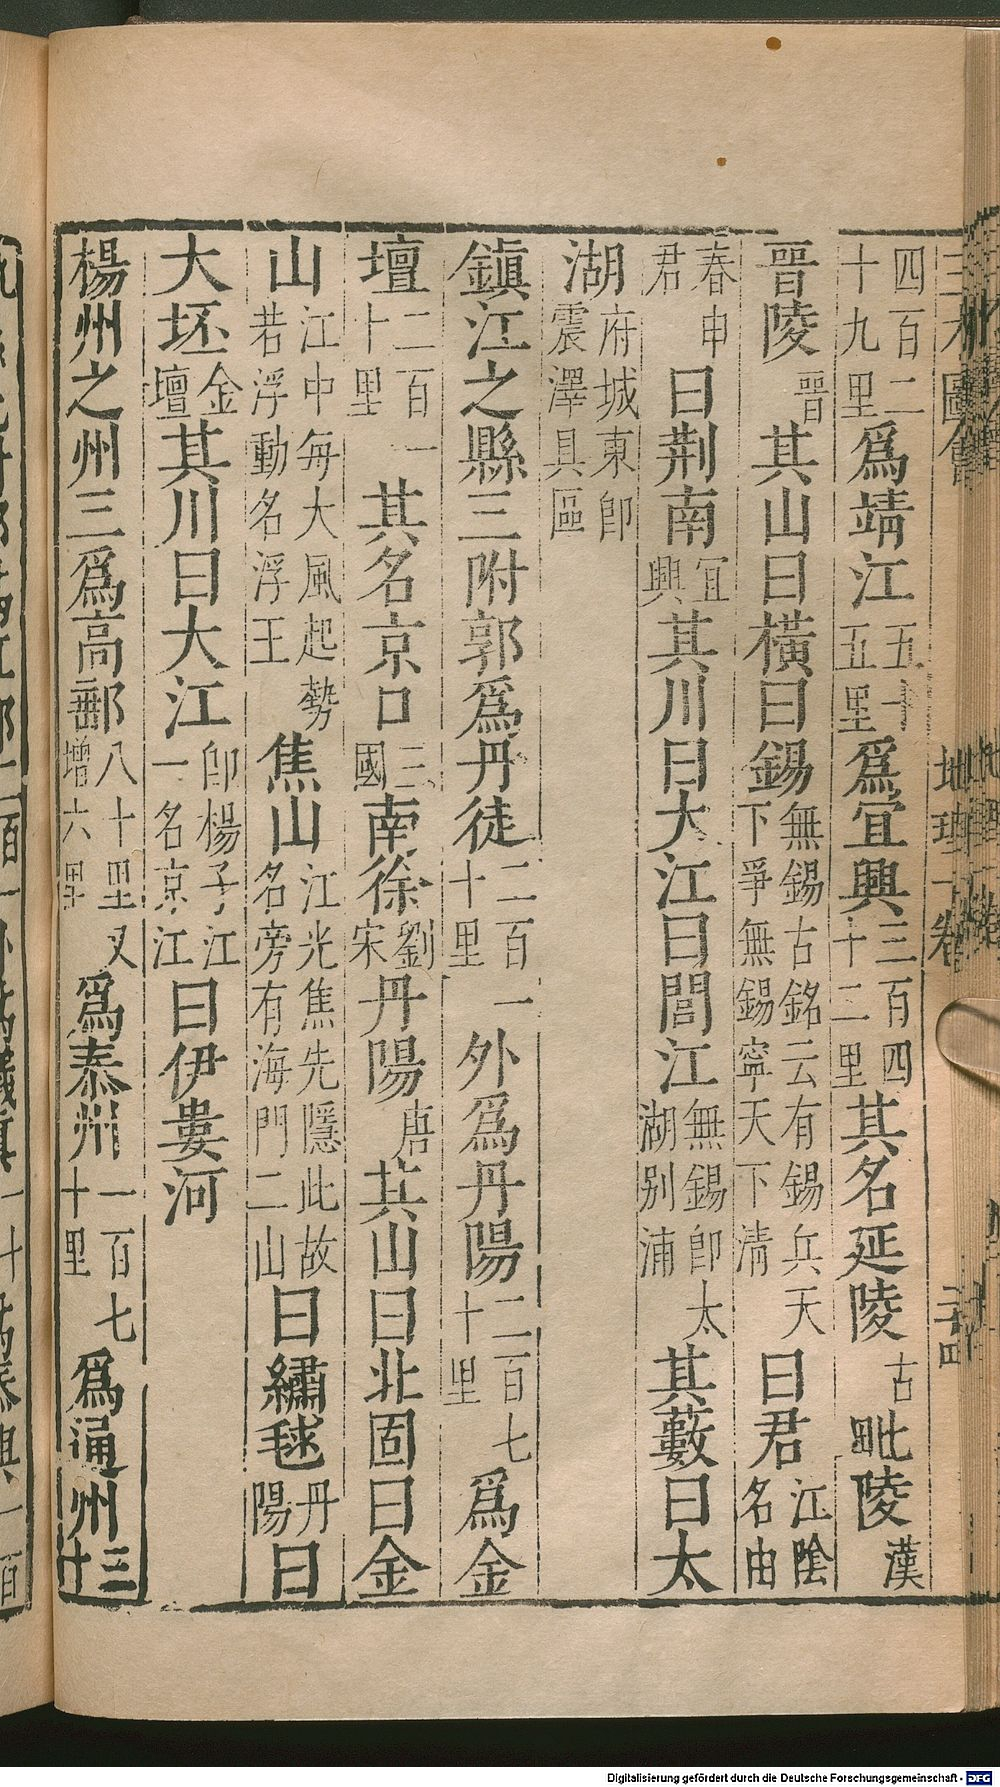 四百二十九里爲靖江五十五里爲宜興三百四十二里其名延陵古毗陵漢
晉陵晉其山曰橫曰錫無錫古銘云有錫兵天下爭無錫寧天下清曰君江陰名由
春申君曰荆南宜興其川曰大江曰閭江無錫即太湖别浦其藪曰太
湖府城東即震澤具區
鎮江之縣三附郭爲丹徒二百一十里外爲丹陽二百七十里爲金
壇二百一十里其名京口三國南徐劉宋丹陽唐其山曰北固曰金
山江中每大風起勢若浮動名浮王焦山江光焦先隱此故名旁有海門二山曰繡毬丹陽曰
大坯金壇其川曰大江即楊子江一名京江曰伊婁河
楊州之州三爲高郵八十里又增六里爲泰州一百七十里爲通州三十
三才圖會
地理十卷
二十四
Digitalisierung gefördert durch die Deutsche Forschungsgemeinschaft - DFG